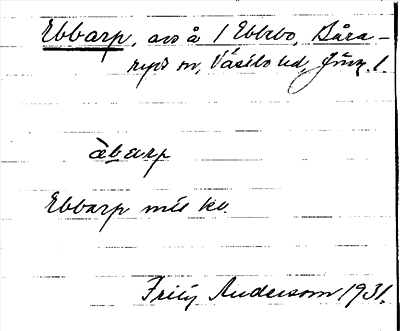 Ebbarp, avs å 1 Ebbebo, Båra-
ryds sn, Västbo hd, Jönk. l.
àbarp
Ebbarp mts kv.
Fritz Anderson 1931.